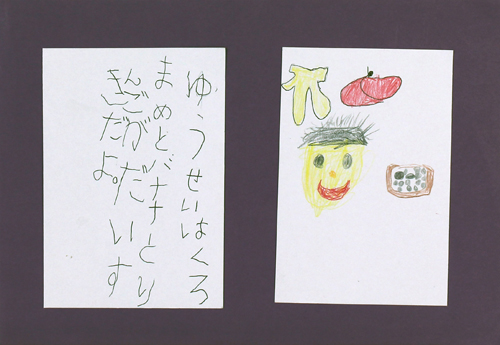 ゆうせいはくろ
まめとバナナとり
んごがだいす
きだよ。